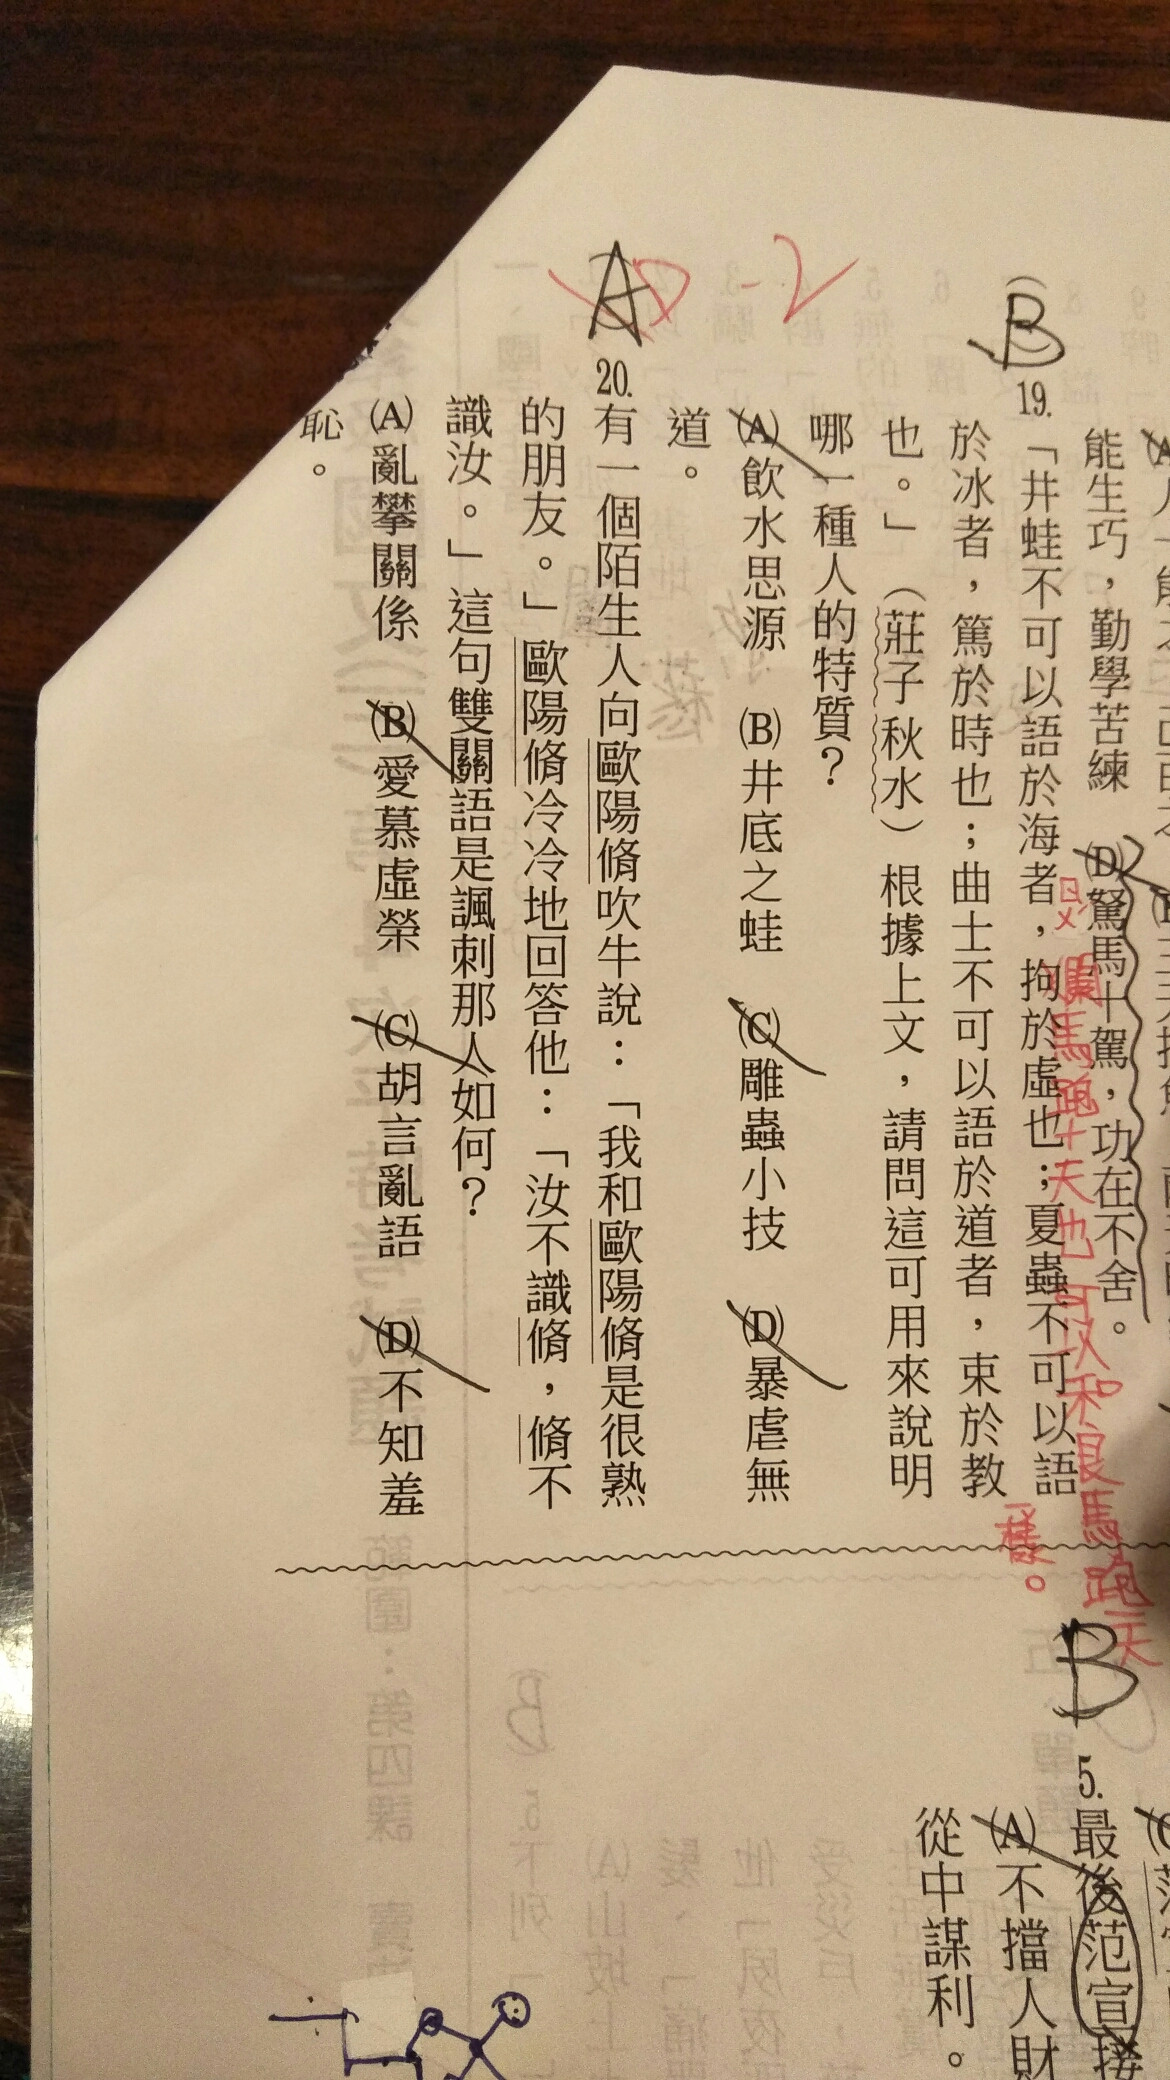 能生巧，勤學苦練 (D)駑馬十駕，功在不舍。
只要馬跑十天也可以和良馬跑一天
一樣。
B
19.「井蛙不可以語於海者，拘於虛也；夏蟲不可以語
於冰者，篤於時也；曲士不可以語於道者，束於教
也。」（莊子秋水）根據上文，請問這可用來說明
哪一種人的特質？
(A)飲水思源 (B)井底之蛙 (C)雕蟲小技 (D)暴虐無
道。
A
D
-2
20.有一個陌生人向歐陽脩吹牛說：「我和歐陽脩是很熟
的朋友。」歐陽脩冷冷地回答他：「汝不識脩，脩不
識汝。」這句雙關語是諷刺那人如何？
(A)亂攀關係 (B)愛慕虛榮 (C)胡言亂語 (D)不知羞
恥。
B
5.最後范宣接
(A)不擋人財
從中謀利。